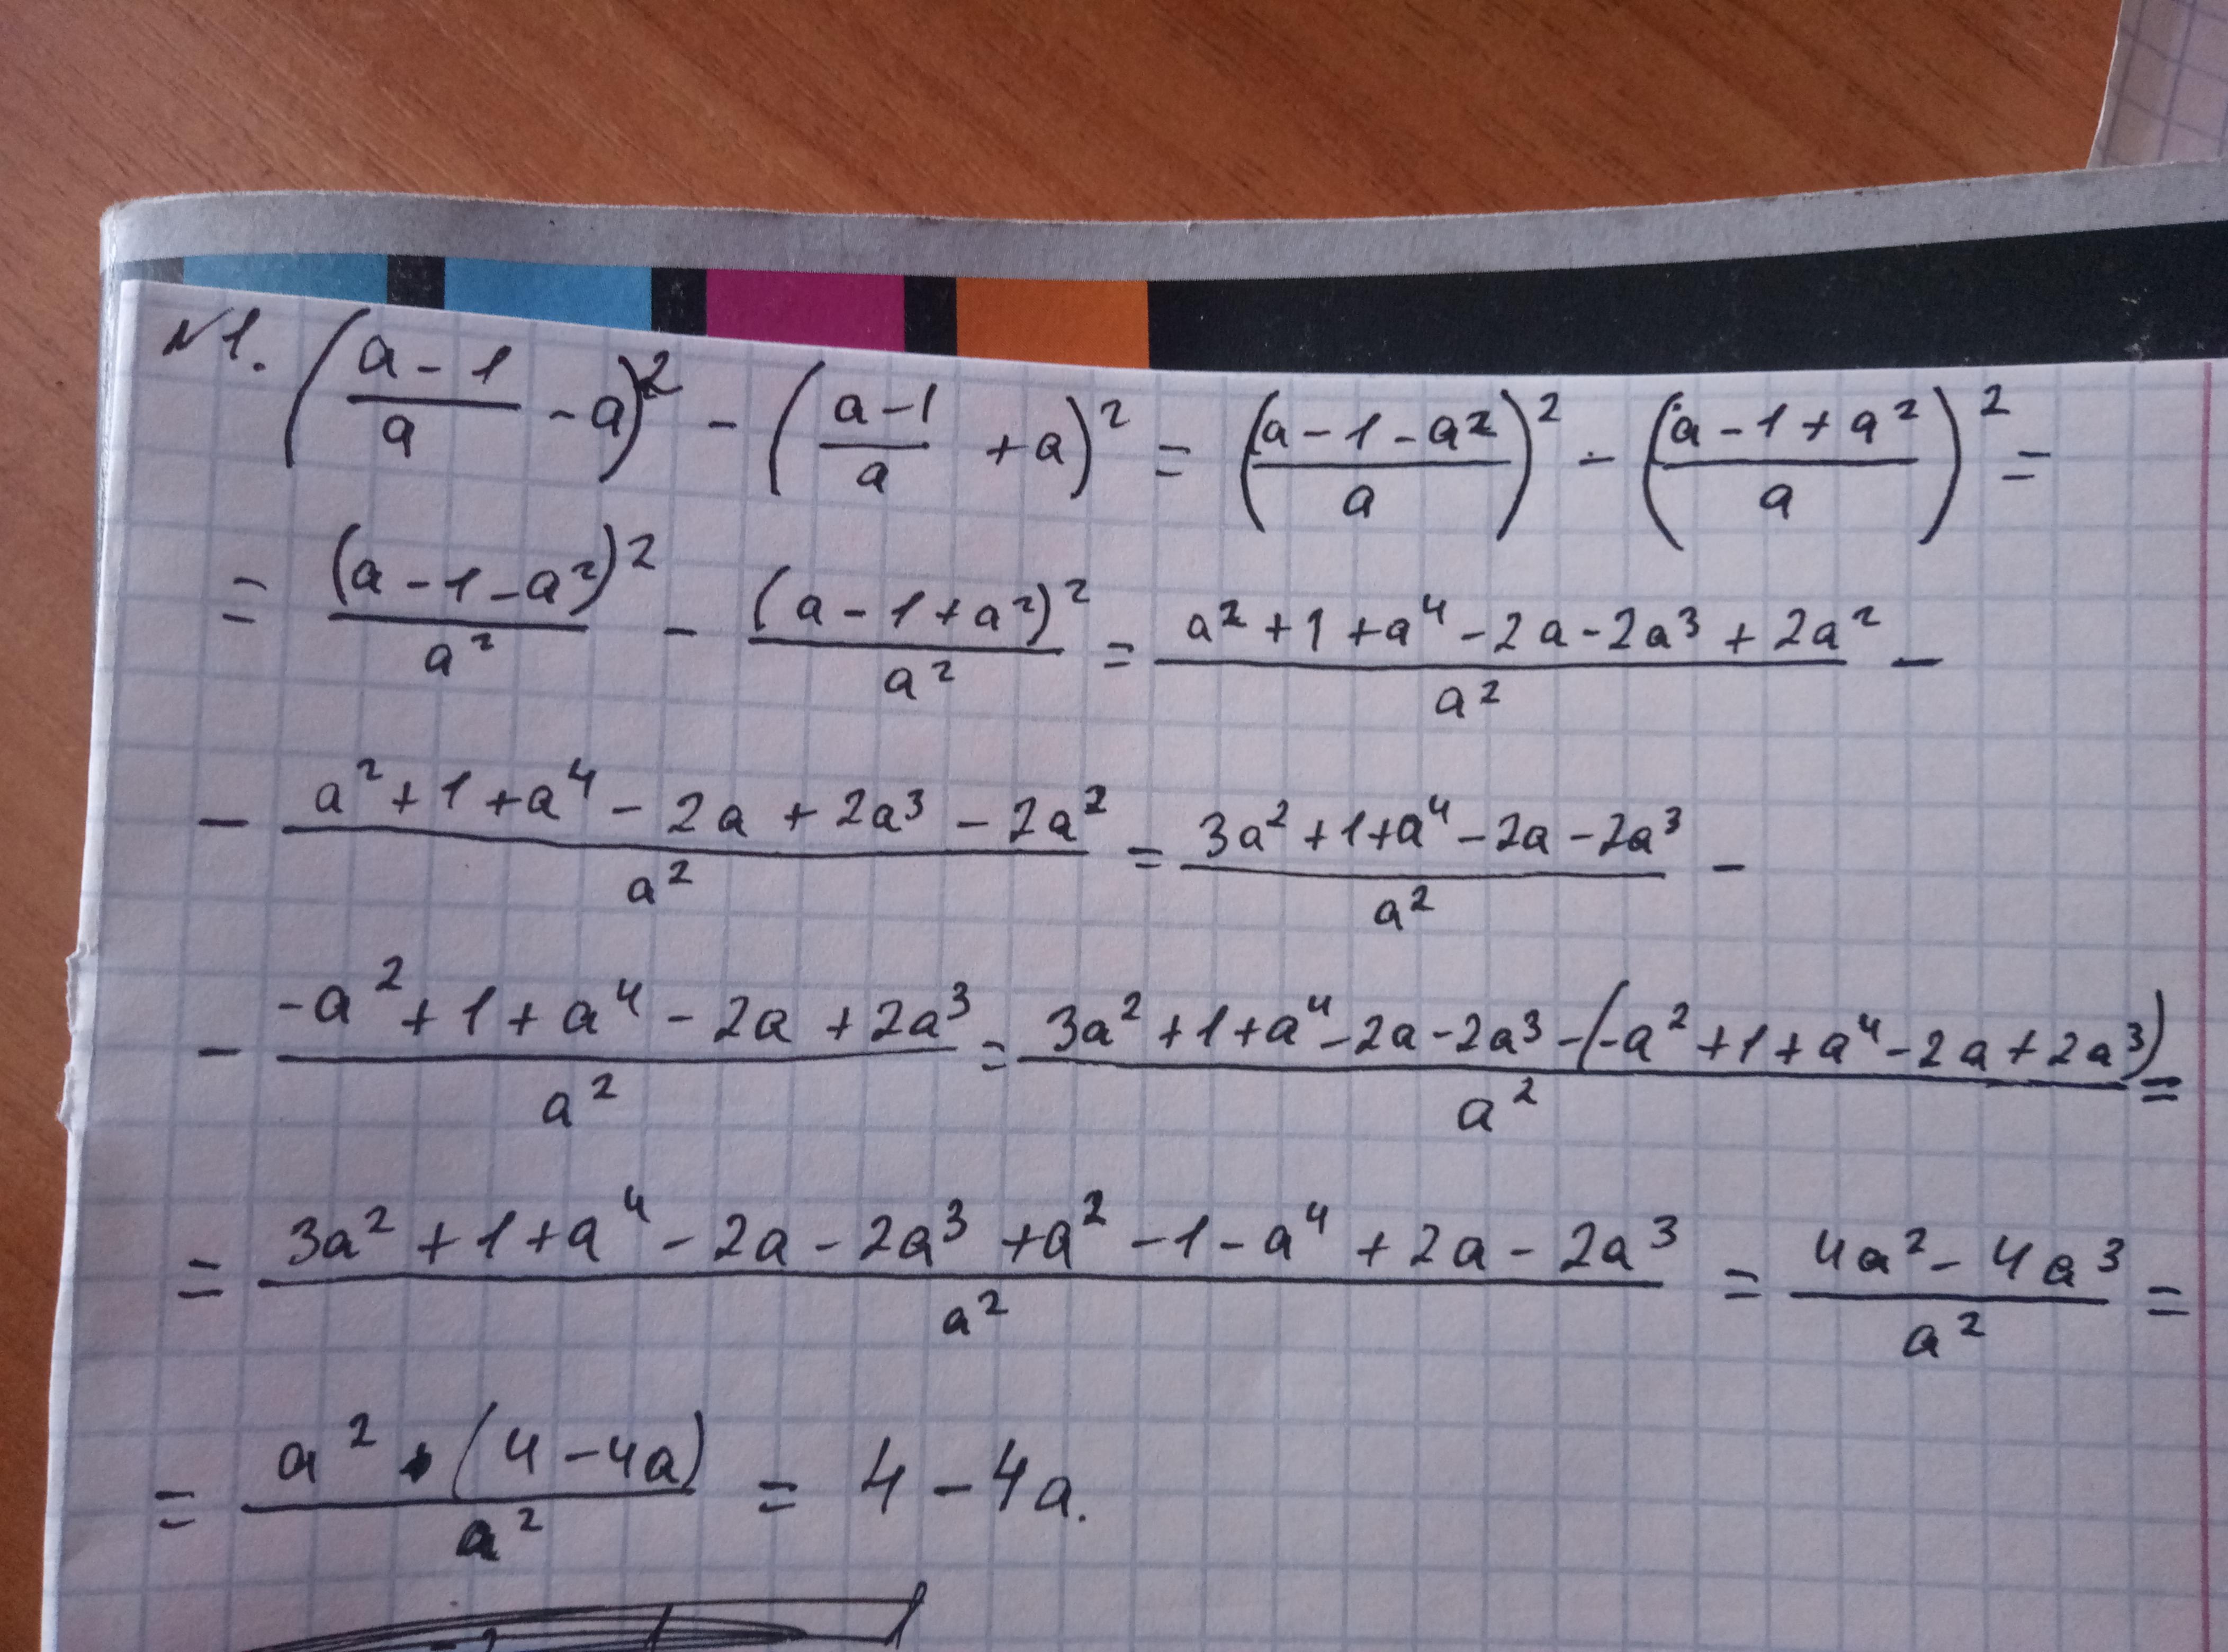 №1. ((a-1)/a - a)² - ((a-1)/a + a)² = ((a-1-a²)/a)² - ((a-1+a²)/a)² =
= (a-1-a²)²/a² - (a-1+a²)²/a² = (a²+1+a⁴-2a-2a³+2a²)/a² -
- (a²+1+a⁴-2a+2a³-2a²)/a² = (3a²+1+a⁴-2a-2a³)/a² -
- (-a²+1+a⁴-2a+2a³)/a² = (3a²+1+a⁴-2a-2a³-(-a²+1+a⁴-2a+2a³))/a² =
= (3a²+1+a⁴-2a-2a³+a²-1-a⁴+2a-2a³)/a² = (4a²-4a³)/a² =
= (a²·(4-4a))/a² = 4-4a.